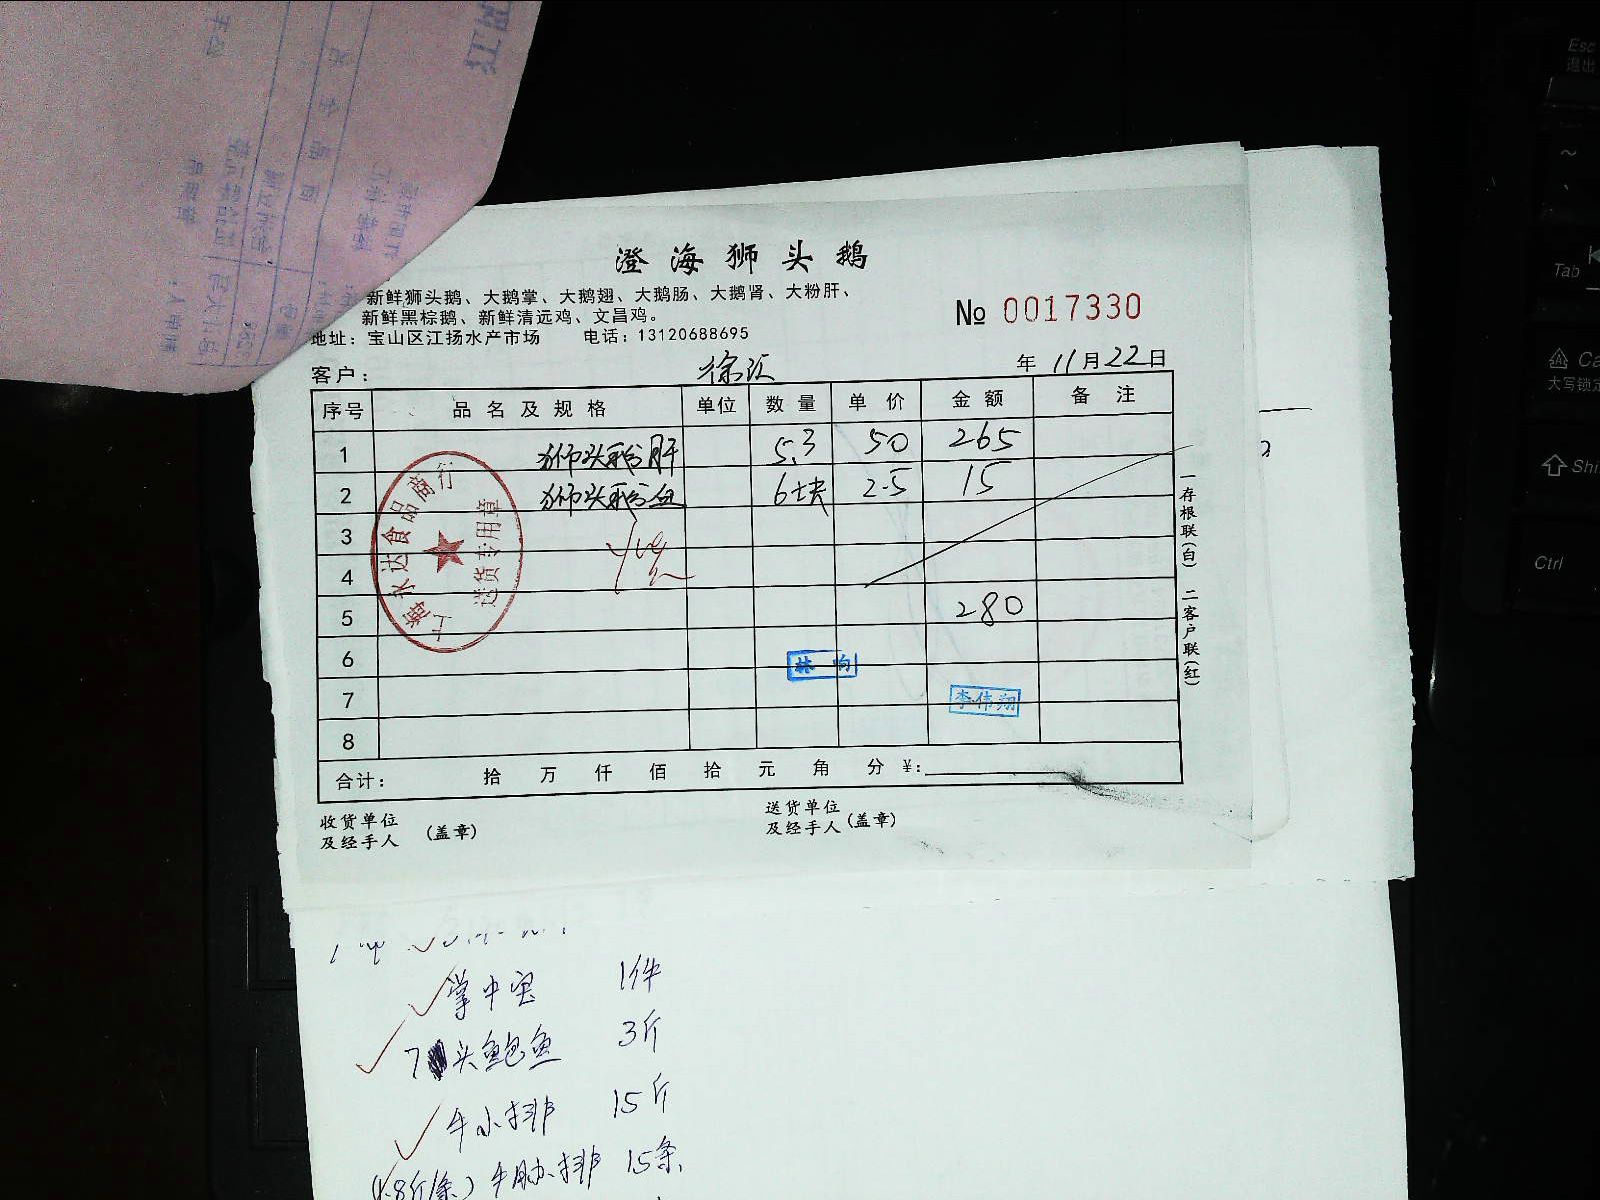 澄海狮头鹅
新鲜狮头鹅、大鹅掌、大鹅翅、大鹅肠、大鹅肾、大粉肝、
新鲜黑棕鹅、新鲜清远鸡、文昌鸡。
№ 0017330
地址: 宝山区江扬水产市场 电话: 13120688695
客户: 徐汇 年 11月22日
序号 品名及规格 单位 数量 单价 金额 备注
1 狮头鹅肝 5.3 50 265
2 狮头鹅血 6块 2.5 15
3
4
5 280
6
7
8
上海水达食品商行
送货专用章
林向
李伟翔
合计: 拾 万 仟 佰 拾 元 角 分 ¥:
收货单位
及经手人 (盖章)
送货单位
及经手人 (盖章)
一存根联(白) 二客户联(红)
掌中宝 1件
7头鲍鱼 3斤
牛小排 15斤
牛肋排 15条
Esc
退出
Tab
大写锁定
Shi
Ctrl